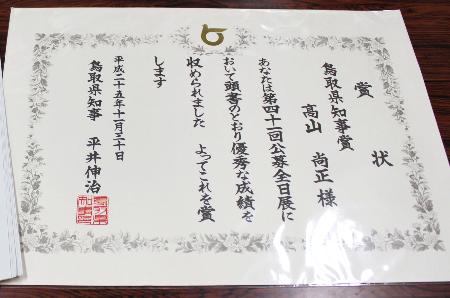 賞状
鳥取県知事賞
高山 尚正 様
あなたは第四十一回公募全日展に
おいて頭書のとおり優秀な成績を
収められました よってこれを賞
します
平成二十五年十一月三十日
鳥取県知事 平井伸治